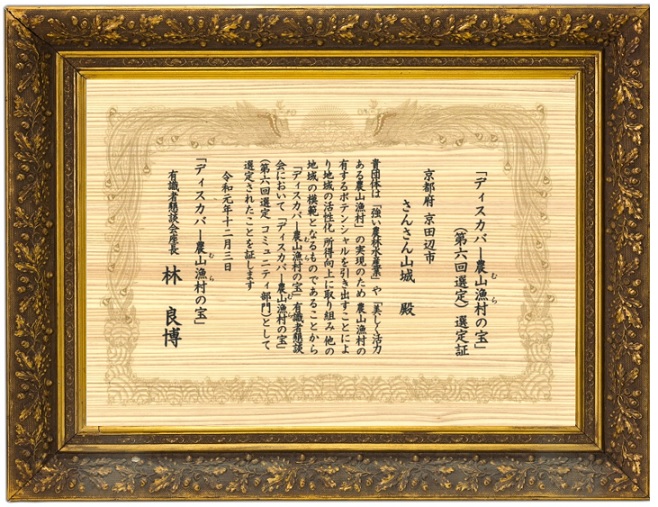 「ディスカバー農山漁村の宝」
むら
(第六回選定) 選定証
京都府 京田辺市
さんさん山城 殿
貴団体は「強い農林水産業」や「美しく活力
ある農山漁村」の実現のため 農山漁村の
有するポテンシャルを引き出すことによ
り地域の活性化 所得向上に取り組み 他の
地域の模範となるものであることから
「ディスカバー農山漁村の宝」有識者懇談
むら
会において「ディスカバー農山漁村の宝」
むら
(第六回選定 コミュニティ部門)として
選定されたことを証します
令和元年十二月三日
「ディスカバー農山漁村の宝」
むら
有識者懇談会座長 林 良博